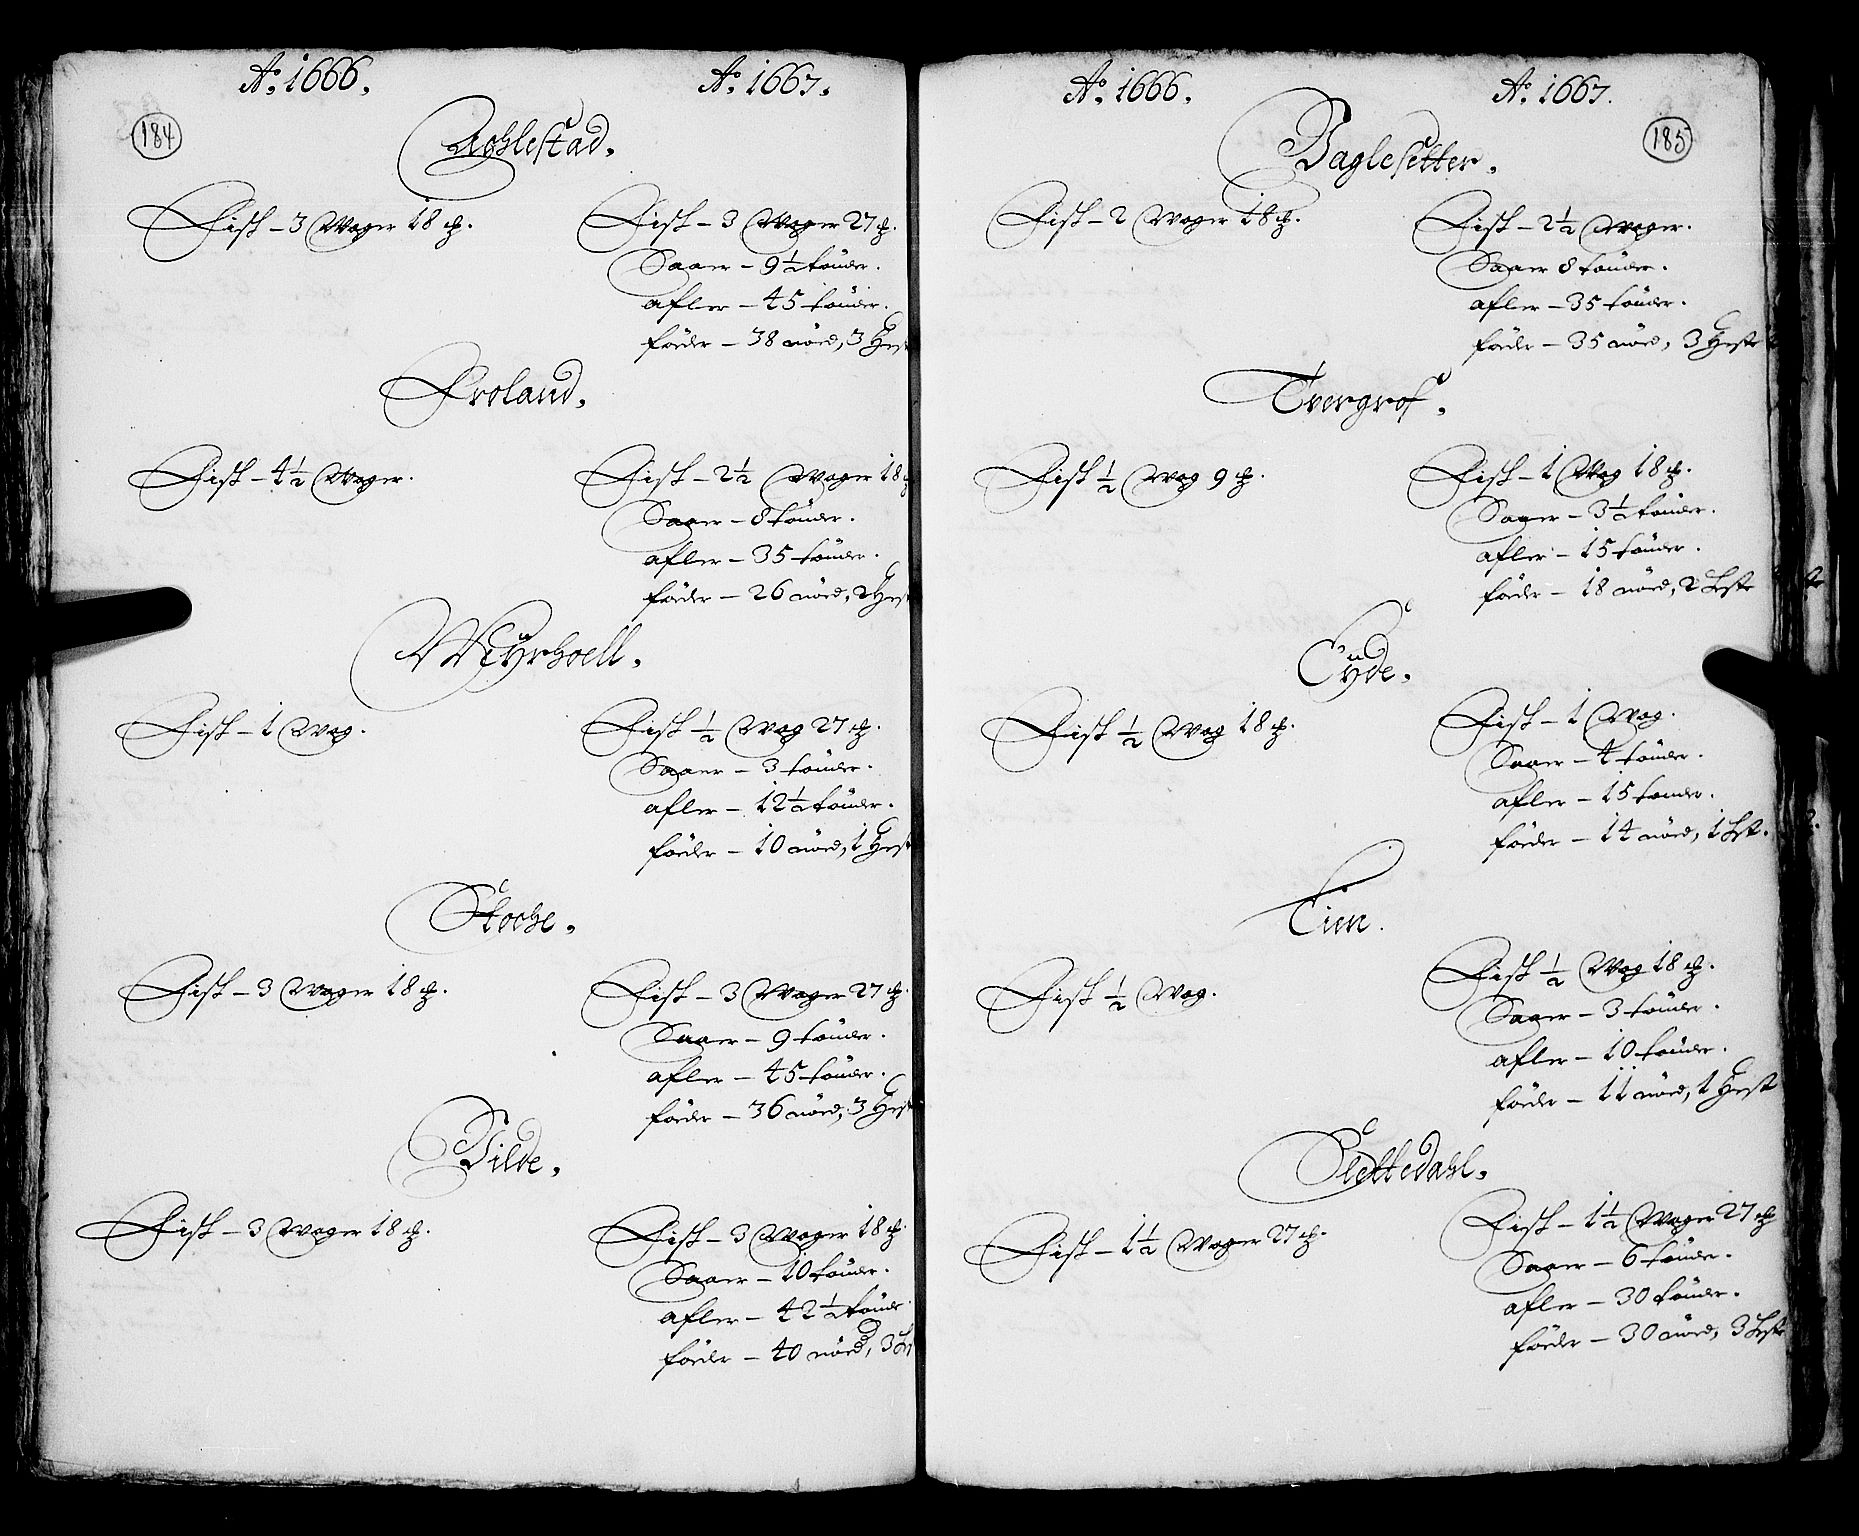 Aº. 1666.
Aº. 1667.
184
Aahlestad.
Fisk – 3 Woger 18 ℔.
Fisk – 3 Woger 27 ℔.
Saaer – 9½ tönder.
afler – 45 tönder.
föeder – 38 nöed, 3 Hest
Froland.
Fisk – 4½ Woger.
Fisk – 2½ Woger 18 ℔
Saaer – 8 tönder.
afler – 35 tönder.
föeder – 26 nöed, 2 Hest
Fisk – 1 Wog.
Fisk ½ Wog 27 ℔.
Saaer – 3 tönder.
afler – 12½ tönder.
föeder – 10 nöed, 1 Hest
Stoche.
Fisk – 3 Woger 18 ℔.
Fisk – 3 Woger 27 ℔.
Saaer – 9 tönder.
afler – 45 tönder.
föeder – 36 nöed, 3 Hest
Tilde.
Fisk – 3 Woger 18 ℔.
Fisk – 3 Woger 18 ℔.
Saaer – 10 tönder.
afler – 42½ tönder.
föeder – 40 nöed, 3
Aº. 1666.
Aº. 1667.
185
Baglesetter.
Fisk – 2 Woger 18 ℔.
Fisk – 2½ Woger.
Saaer 8 tönder.
afler – 35 tönder.
föeder – 35 nöed, 3 Heste
Tvergrof.
Fisk ½ Wog 9 ℔.
Fisk – 1 Wog 18 ℔.
Saaer – 3½ tönder.
afler – 15 tönder.
föeder – 18 nöed, 2 Heste
Eyde.
Fisk ½ Wog 18 ℔.
Fisk – 1 Wog.
Saaer – 4 tönder.
afler – 15 tönder.
föeder – 14 nöed, 1 Hest.
Fisk ½ Wog.
Fisk ½ Wog 18 ℔.
Saaer – 3 tönder.
afler – 10 tönder.
föeder – 11 nöed, 1 Hest
Slettedahl.
Fisk – 1½ Woger 27 ℔.
Fisk – 1½ Woger 27 ℔
Saaer – 6 tönder.
afler – 30 tönder.
föeder – 30 nöed, 3 Heste